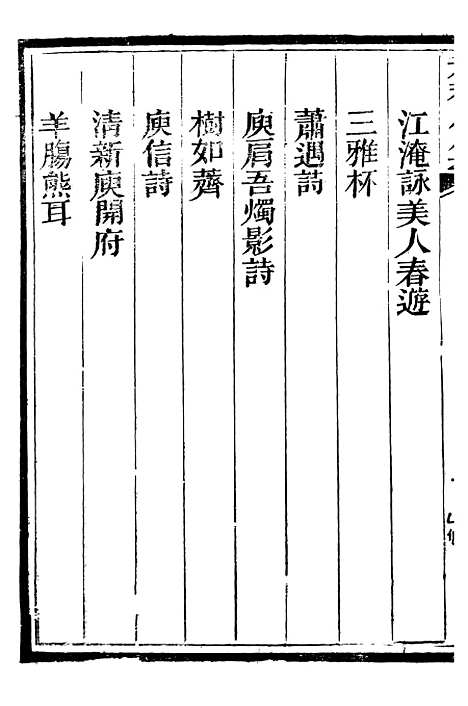 江淹詠美人春遊
三雅杯
蕭遇詩
庾肩吾燭影詩
樹如薺
庾信詩
清新庾開府
羊腸熊耳